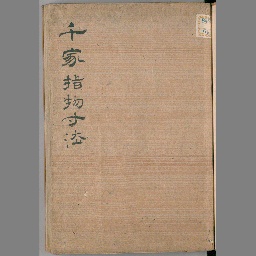 千家指物寸法